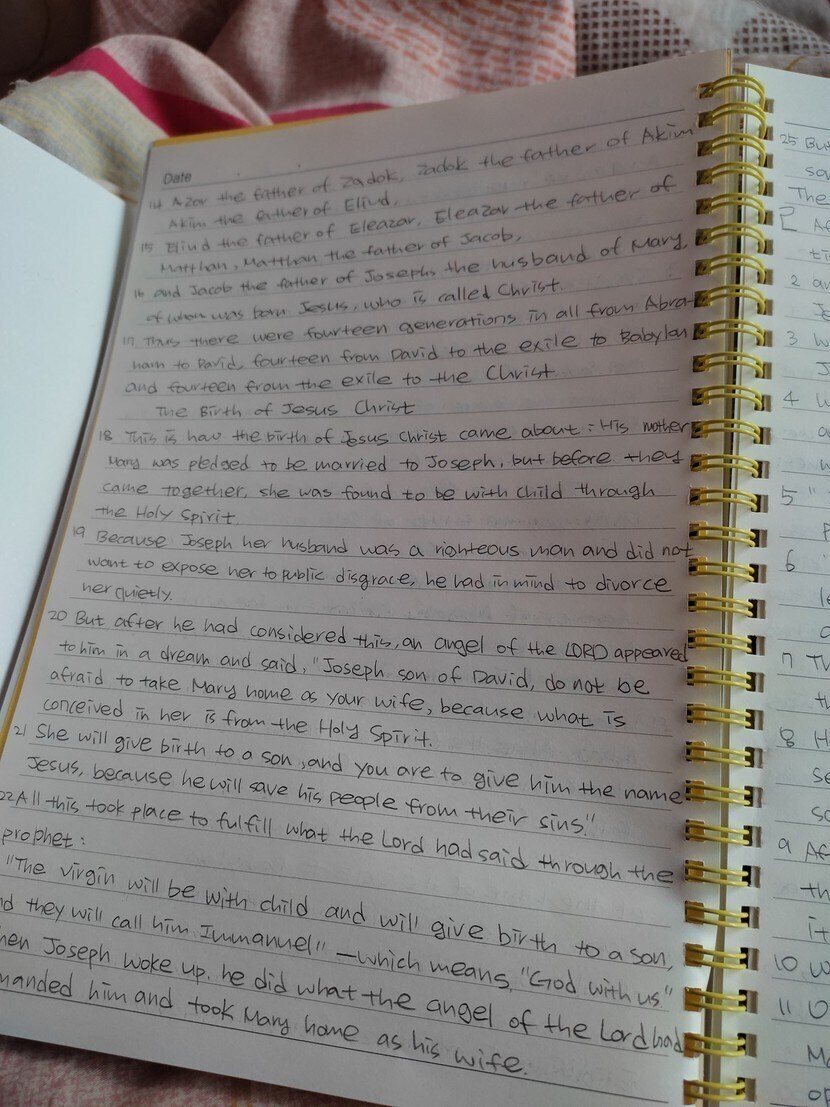 Date
14 Azor the father of Zadok, Zadok the father of Akim
Akim the father of Eliud,
15 Eliud the father of Eleazar, Eleazar the father of
Matthan, Matthan the father of Jacob,
16 and Jacob the father of Joseph, the husband of Mary,
of whom was born Jesus, who is called Christ.
17 Thus there were fourteen generations in all from Abra-
ham to David, fourteen from David to the exile to Babylon
and fourteen from the exile to the Christ
The Birth of Jesus Christ
18 This is how the birth of Jesus Christ came about: His mother
Mary was pledged to be married to Joseph, but before they
came together, she was found to be with child through
the Holy Spirit.
19 Because Joseph her husband was a righteous man and did not
want to expose her to public disgrace, he had in mind to divorce
her quietly.
20 But after he had considered this, an angel of the LORD appeared
to him in a dream and said, "Joseph son of David, do not be
afraid to take Mary home as your wife, because what is
conceived in her is from the Holy Spirit.
21 She will give birth to a son, and you are to give him the name
Jesus, because he will save his people from their sins."
22 All this took place to fulfill what the Lord had said through the
prophet:
"The virgin will be with child and will give birth to a son,
nd they will call him Immanuel" – which means, "God with us."
hen Joseph woke up, he did what the angel of the Lord had
manded him and took Mary home as his wife.
25 But
The
2
2
3
4
5 "
6
7
8 H
9 Af
th
it
10
11